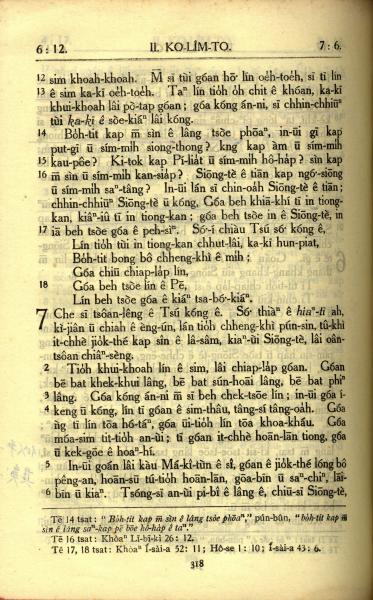 6 : 12. II. KO-LÎM-TO. 7 : 6.
12 sim khoah-khoah. M̄ sī tùi góan hō͘ lín oe̍h-toe̍h, sī tī lín
13 ê sim ka-kī oe̍h-toe̍h. Taⁿ lín tio̍h o̍h chit ê khóan, ka-kī
khui-khoah lâi pò-tap góan ; góa kóng án-ni, sī chhin-chhiūⁿ
tùi ka-kī ê sòe-kiáⁿ lâi kóng.
14 Bo̍h-tit kap m̄ sìn ê lâng tsòe phōaⁿ, in-ūi gī kap
put-gī ū sím-mih siong-thong ? kng kap àm ū sím-mih
15 kau-pôe ? Ki-tok kap Pí-lia̍t ū sím-mih hô-ha̍p ? sìn kap
16 m̄ sìn ū sím-mih kan-sia̍p ? Siōng-tè ê tiān kap ngó͘-siōng
ū sím-mih saⁿ-tâng ? In-ūi lán sī chin-oa̍h Siōng-tè ê tiān ;
chhin-chhiūⁿ Siōng-tè ū kóng, Góa beh khiā-khí tī in tiong-
kan, kiâⁿ-iû tī in tiong-kan ; góa beh tsòe in ê Siōng-tè, in
17 iā beh tsòe góa ê peh-sìⁿ. Só͘-í chiàu Tsú só͘ kóng ê,
Lín tio̍h tùi in tiong-kan chhut-lâi, ka-kī hun-piat,
Bo̍h-tit bong bô chheng-khì ê mi̍h ;
Góa chiū chiap-la̍p lín,
18 Góa beh tsòe lín ê Pē,
Lín beh tsòe góa ê kiáⁿ tsa-bó͘-kiáⁿ.
7 Che sī tsôan-lêng ê Tsú kóng ê. Só͘ thiàⁿ ê hiaⁿ-tī ah,
kì-jiân ū chiah ê èng-ún, lán tio̍h chheng-khì pún-sin, tû-khì
it-chhè jio̍k-thé kap sin ê lâ-sâm, kiaⁿ-ùi Siōng-tè, lâi oân-
tsôan chiâⁿ-sèng.
2 Tio̍h khui-khoah lín ê sim, lâi chiap-la̍p góan. Góan
bē bat khek-khui lâng, bē bat sún-hoāi lâng, bē bat phiⁿ
3 lâng. Góa kóng án-ni m̄ sī beh chek-tsōe lín ; in-ūi góa í-
4 keng ū kóng, lín tī góan ê sim-thâu, tâng-sí tâng-oa̍h. Góa
ǹg tī lín tōa hō-táⁿ, góa ūi-tio̍h lín tōa khoa-kháu. Góa
móa-sim tit-tio̍h an-ùi ; tī góan it-chhè hoān-lān tiong, góa
ū kek-gōe ê hoaⁿ-hí.
5 In-ūi góan lâi kàu Má-kî-tùn ê sî, góan ê jio̍k-thé lóng bô
pêng-an, hoān-sū tú-tio̍h hoān-lān, gōa-bīn ū saⁿ-chiⁿ, lāi-
6 bīn ū kiaⁿ. Tsóng-sī an-ùi pi-bî ê lâng ê, chiū-sī Siōng-tè,
Tē 14 tsat : " Bo̍h-tit kap m̄ sìn ê lâng tsòe phōaⁿ," pún-bûn, " bo̍h-tit kap m̄
sìn ê lâng saⁿ-kap pē bōe hô-ha̍p ê taⁿ."
Tē 16 tsat : Khòaⁿ Lī-bī-kì 26 : 12.
Tē 17, 18 tsat : Khòaⁿ Í-sài-a 52 : 11 ; Hô-se 1 : 10 ; Í-sài-a 43 : 6.
318